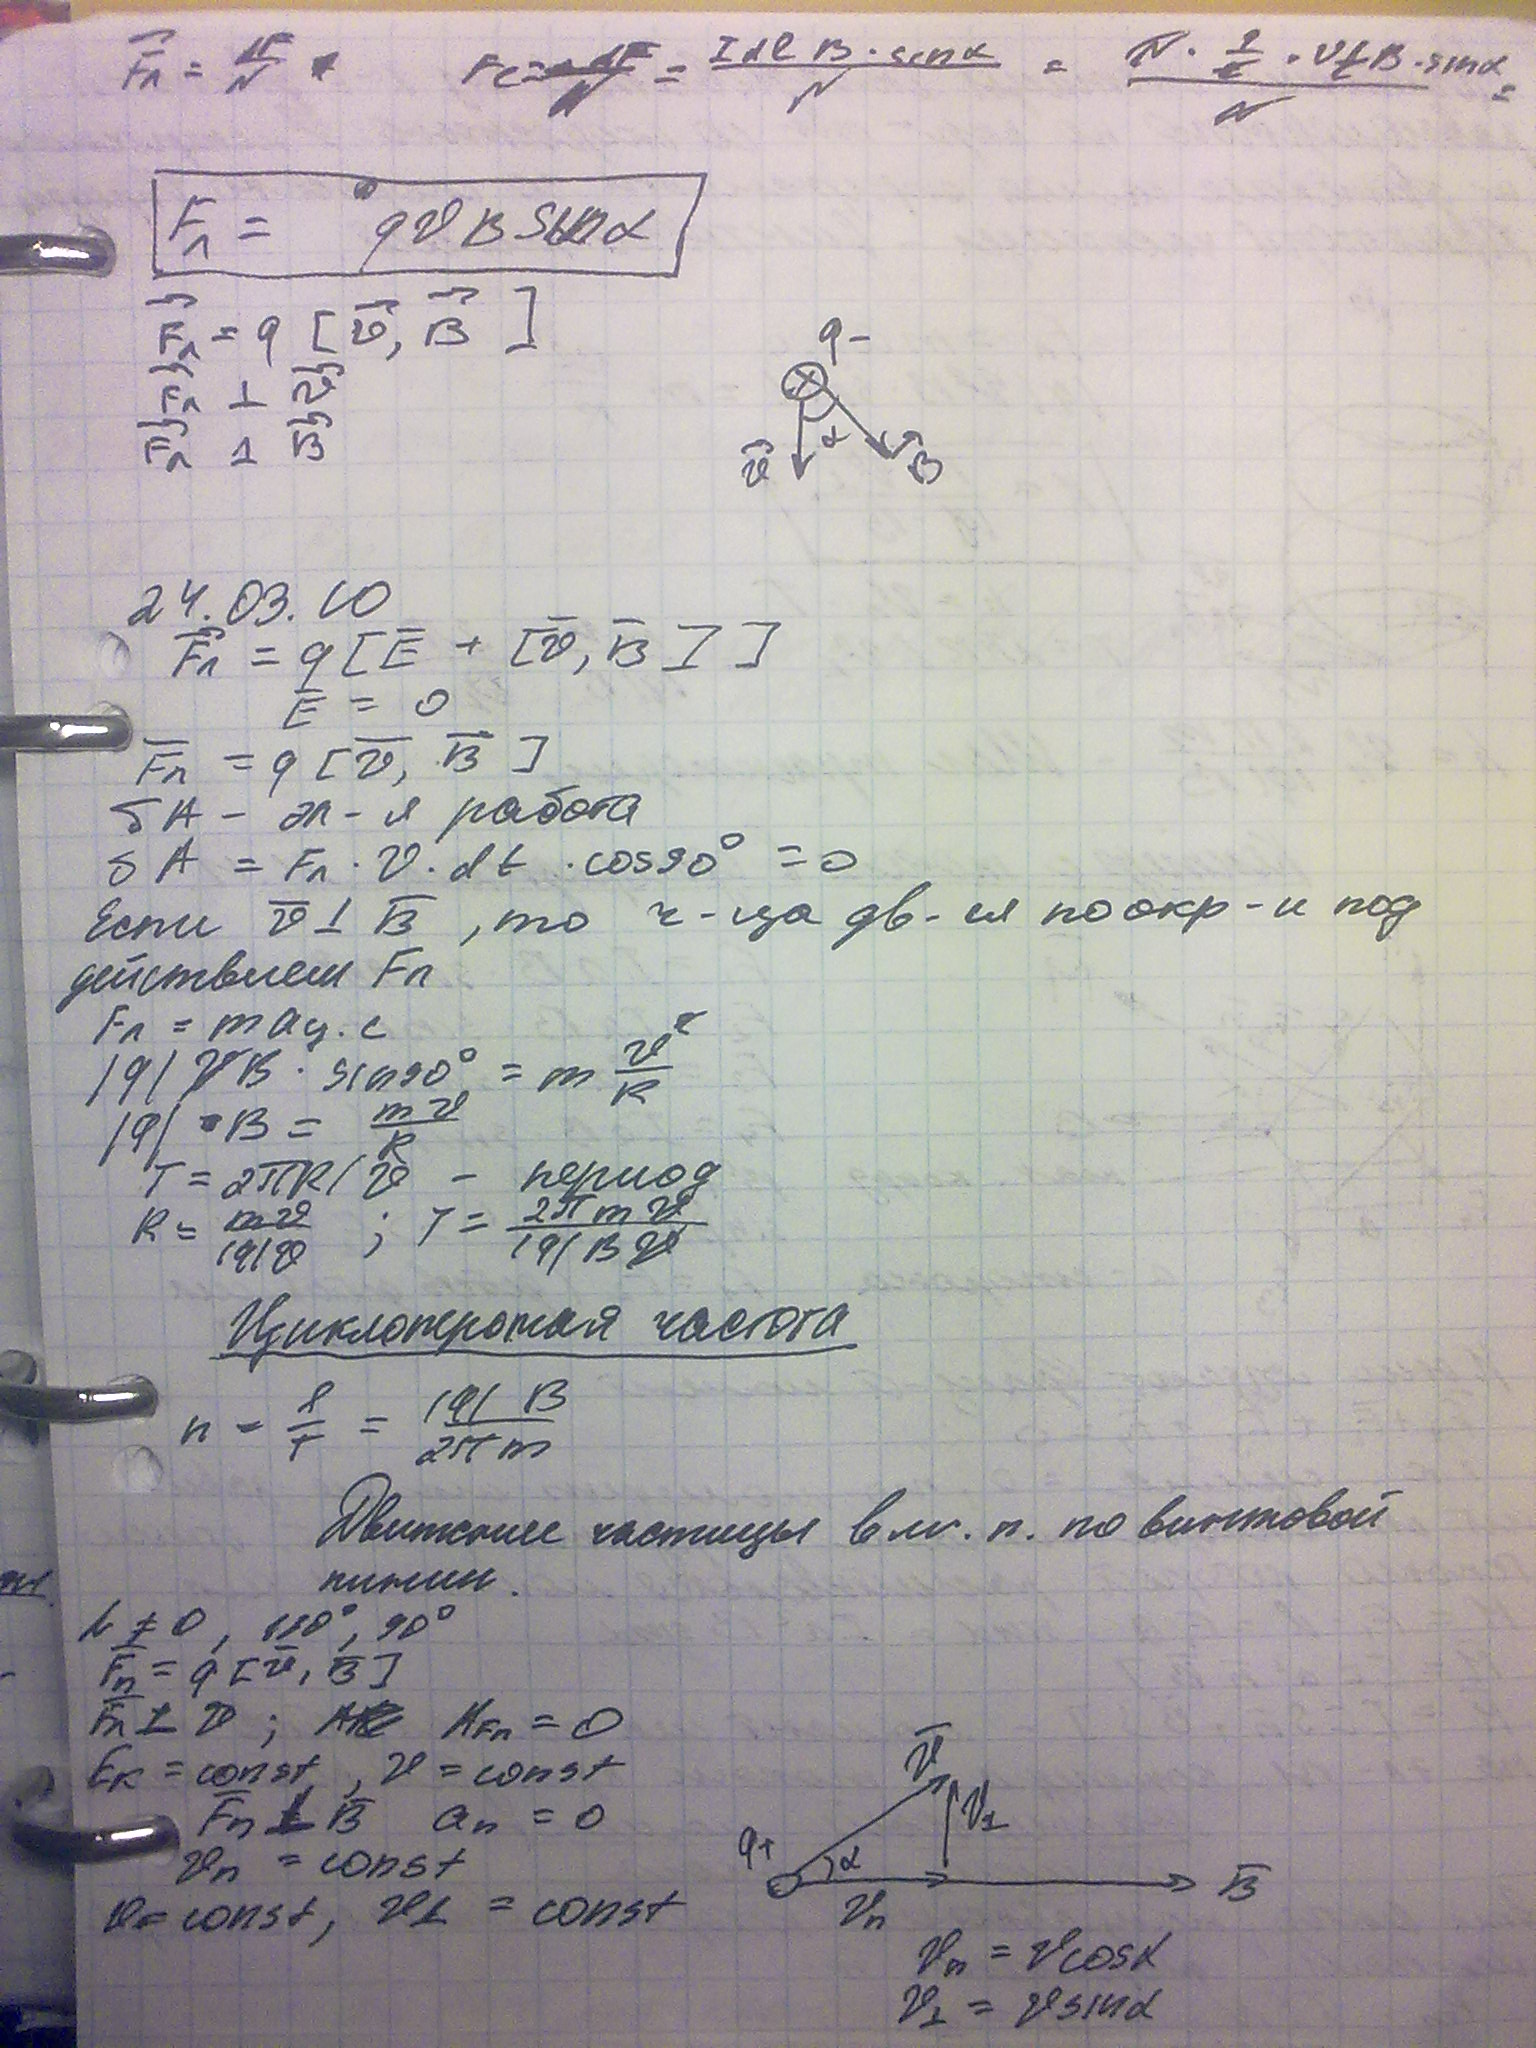 F⃗л = dF/N
Fл = I dl B · sinα / N = N · q/t · vtB · sinα / N =
Fл = qvB sinα
F⃗л = q [v⃗, B⃗]
q-
F⃗л ⊥ v⃗
F⃗л ⊥ B⃗
α
v⃗ B⃗
24.03.10
F⃗л = q [E̅ + [v̅, B̅]]
E̅ = 0
F̅л = q [v̅, B̅]
δA - эл-я работа
δA = Fл · v · dt · cos90° = 0
Если v̅ ⊥ B̅, то ч-ца дв-ся по окр-и под
действием Fл
Fл = m aц.с
|q| vB · sin90° = m v²/R
|q| · B = mv/R
T = 2πR/v - период
R = mv/|q|v ; T = 2πmv/|q|Bv
Циклотронная частота
n = 1/T = |q|B/2πm
Движение частицы в м. п. по винтовой
линии.
α ≠ 0, 180°, 90°
F̅л = q [v̅, B̅]
F̅л ⊥ v̅ ; AFл = 0
Eк = const, v = const
F̅л ⊥ B̅ aп = 0
vп = const
v = const, v⊥ = const
v̅
v⊥
q+ α
vп B̅
vп = v cosα
v⊥ = v sinα